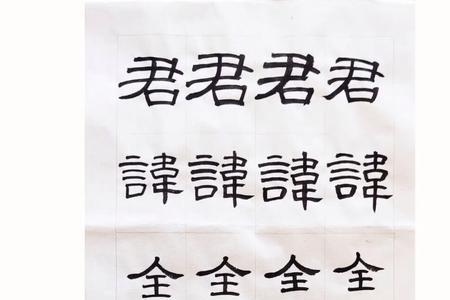 君君君君
諱諱諱諱
全全全全